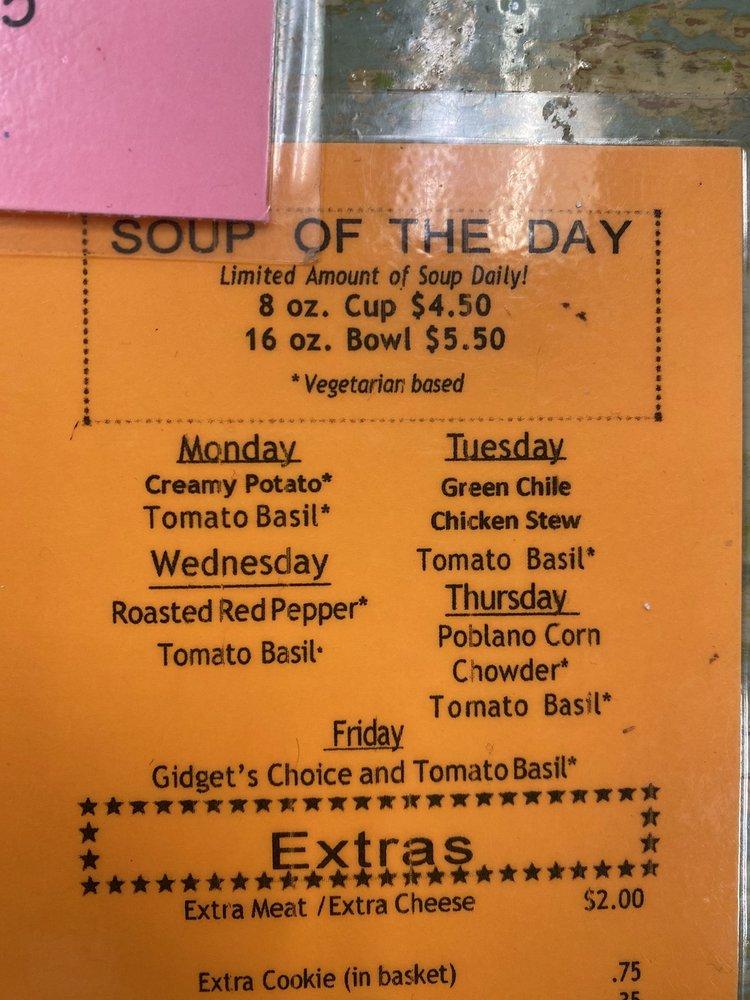 5
SOUP OF THE DAY
Limited Amount of Soup Daily!
8 oz. Cup $4.50
16 oz. Bowl $5.50
*Vegetarian based
Monday
Creamy Potato*
Tomato Basil*
Tuesday
Green Chile
Chicken Stew
Tomato Basil*
Wednesday
Roasted Red Pepper*
Tomato Basil·
Thursday
Poblano Corn
Chowder*
Tomato Basil*
Friday
Gidget's Choice and Tomato Basil*
Extras
Extra Meat /Extra Cheese $2.00
Extra Cookie (in basket) .75